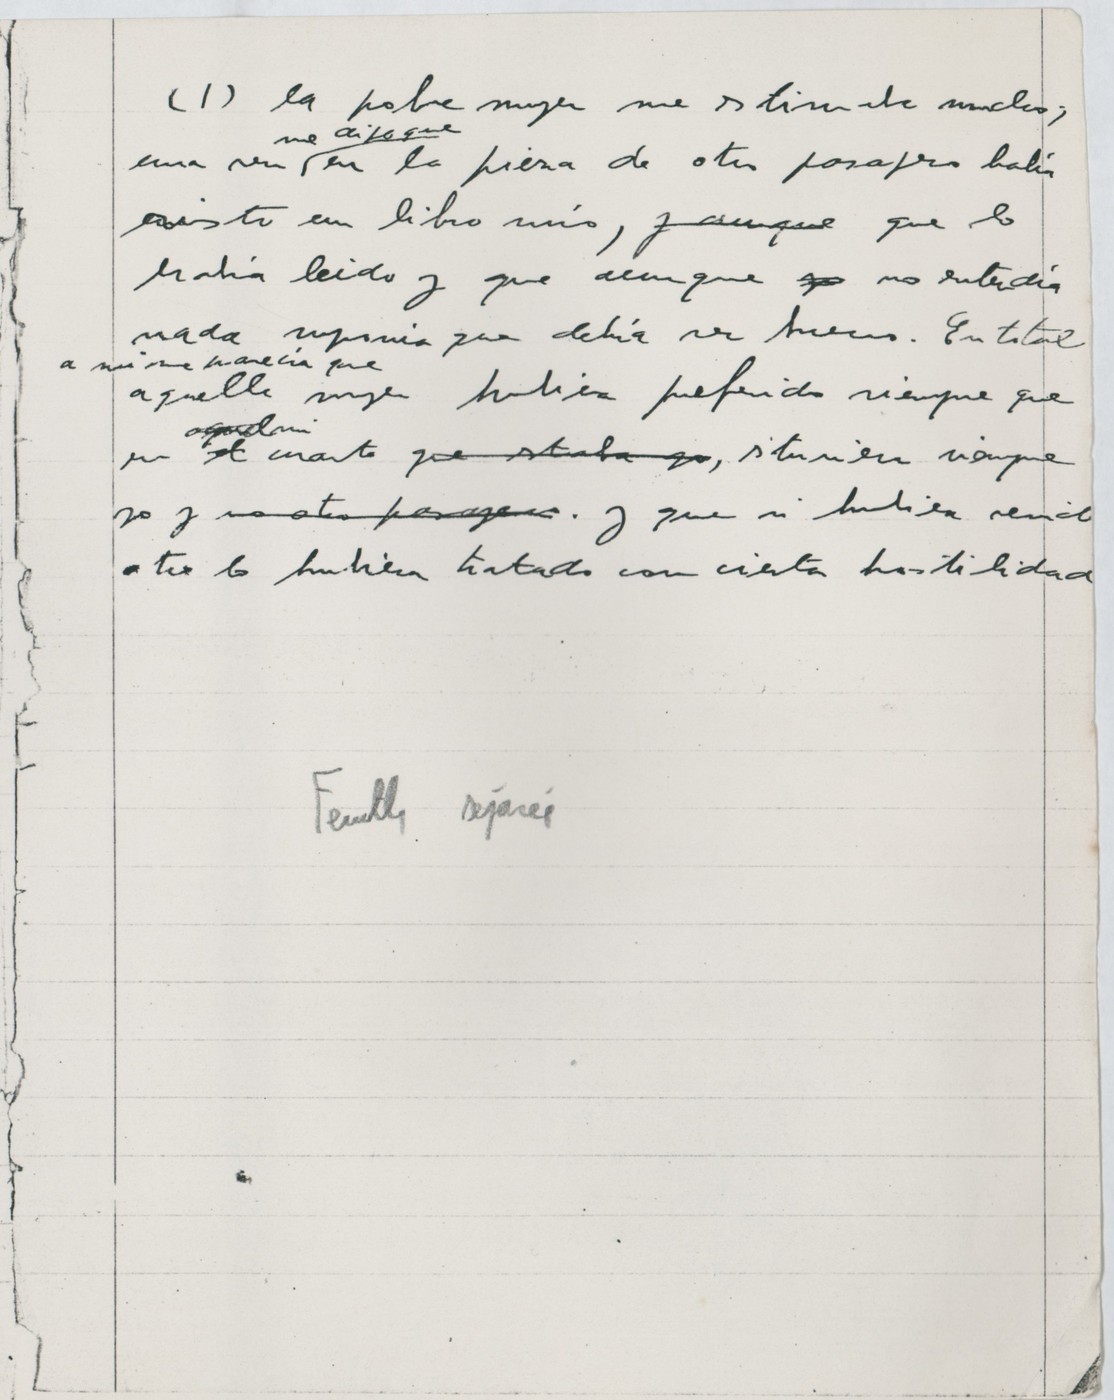 (1) la pobre mujer me estimaba mucho;
me dijo que
una vez en la pieza de otro pasajero había
visto un libro mío, y aunque que lo
había leido y que aunque no entendía
nada suponía que debía ser bueno. En total
a mi me parecía que
aquella mujer hubiera preferido siempre que
aquel mi
en el cuarto que estaba yo, estuviera siempre
yo y no otro pasajero. y que si hubiera venido
otro lo hubiera tratado con cierta hostilidad
Feuille séparée